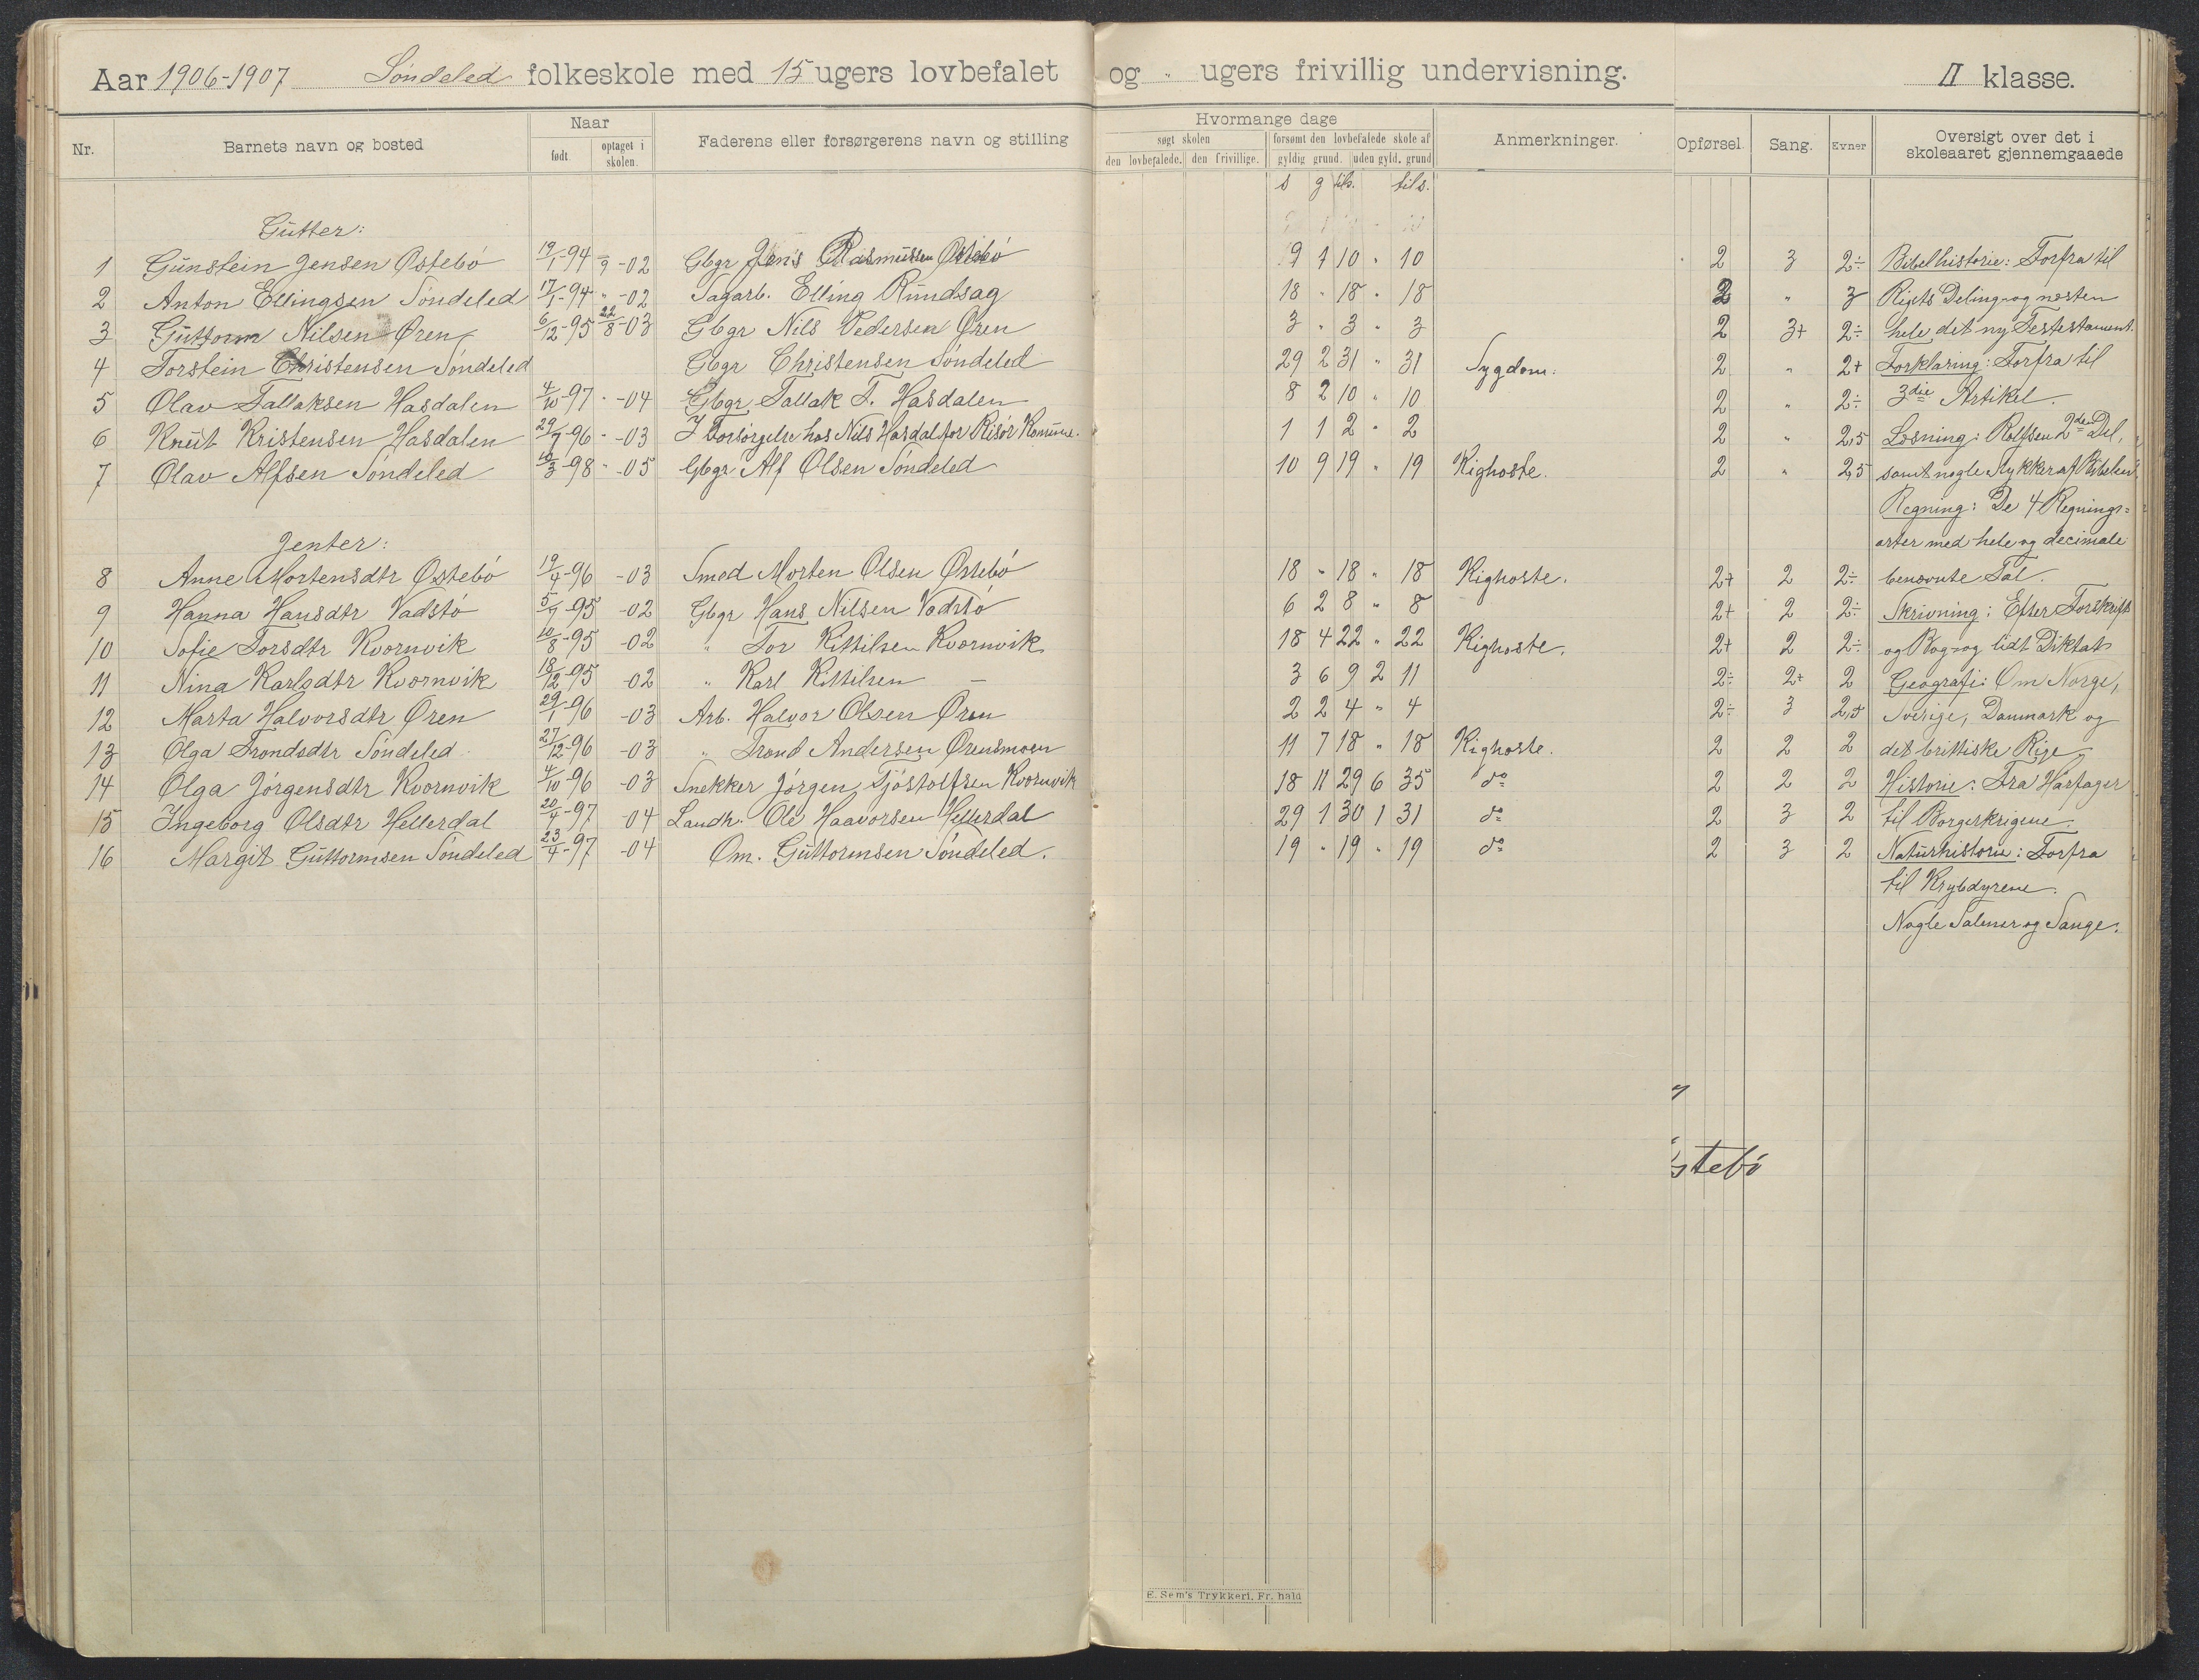 Aar 1906-1907 Søndeled folkeskole med 15 ugers lovbefalet og " ugers frivillig undervisning. II klasse.
Nr. Barnets navn og bosted Naar født. optaget i skolen. Faderens eller forsørgerens navn og stilling
Hvormange dage søgt skolen den lovbefalede. den frivillige. forsømt den lovbefalede skole af gyldig grund. uden gyld. grund Anmerkninger. Opførsel. Sang. Evner Oversigt over det i skoleaaret gjennemgaaede
s g tils. tils.
Gutter:
1 Gunstein Jensen Østebö 19/1-94 -/9-02 Gbgr Jens Rasmussen Østebö 9 1 10 " 10 2 3 2÷ Bibelhistorie: Forfra til
2 Anton Ellingsen Söndeled 17/1-94 " -02 Sagarb. Elling Rundsag 18 " 18 " 18 2 " 3 Rigets Deling og næsten
3 Guttorm Nilsen Øren 6/12-95 22/8-03 Gbgr Nils Pedersen Øren 3 " 3 " 3 2 3+ 2÷ hele det ny Testestament.
4 Torstein Christensen Söndeled Gbgr Christensen Söndeled 29 2 31 " 31 Sygdom. 2 " 2+ Forklaring: Forfra til
5 Olav Tallaksen Hasdalen 4/10-97 " -04 Gbgr Tallak T. Hasdalen 8 2 10 " 10 2 " 2÷ 3die Artikel.
6 Knut Kristensen Hasdalen 29/7-96 " -03 I Forsörgelse hos Nils Hasdal for Risör Komune. 1 1 2 " 2 2 " 2,5 Læsning: Rolfsen 2den Del,
7 Olav Alfsen Söndeled 12/3-98 " -05 Gbgr Alf Olsen Söndeled 10 9 19 " 19 Kighoste. 2 " 2,5 samt nogle Stykker af Bibelen.
Regning: De 4 Regnings-
Jenter: arter med hele og decimale
8 Anne Mortensdtr Østebö 19/4-96 -03 Smed Morten Olsen Østebö 18 " 18 " 18 Kighoste. 2+ 2 2÷ benævnte Tal.
9 Hanna Hansdtr Vadstö 5/7-95 -02 Gbgr Hans Nilsen Vadstö 6 2 8 " 8 2+ 2 2÷ Skrivning: Efter Forskrift
10 Sofie Torsdtr Kvernvik 10/8-95 -02 " Tor Kittilsen Kvernvik 18 4 22 " 22 Kighoste. 2+ 2 2÷ og Bog og lidt Diktat
11 Nina Karlsdtr Kvernvik 18/12-95 -02 " Karl Kittilsen — 3 6 9 2 11 2÷ 2+ 2 Geografi: Om Norge,
12 Marta Halvorsdtr Øren 29/1-96 -03 Arb. Halvor Olsen Øren 2 2 4 " 4 2÷ 3 2,5 Sverige, Danmark og
13 Olga Trondsdtr Söndeled 27/12-96 -03 " Trond Andersen Ørensmoen 11 7 18 " 18 Kighoste. 2 2 2 det brittiske Rige
14 Olga Jörgensdtr Kvernvik 4/10-96 -03 Snekker Jörgen Tjöstolfsen Kvernvik 18 11 29 6 35 do 2 2 2 Historie: Fra Hårfager
15 Ingeborg Olsdtr Hellerdal 20/7-97 -04 Landh. Ole Haavorsen Hellerdal 29 1 30 1 31 do 2 3 2 til Borgerkrigene.
16 Margit Guttormsen Söndeled 23/4-97 -04 Om. Guttormsen Söndeled. 19 " 19 " 19 do 2 3 2 Naturhistorie: Forfra
til Krybdyrene.
Nogle Salmer og Sange.
stebö
E. Sem's Trykkeri, Fr. hald